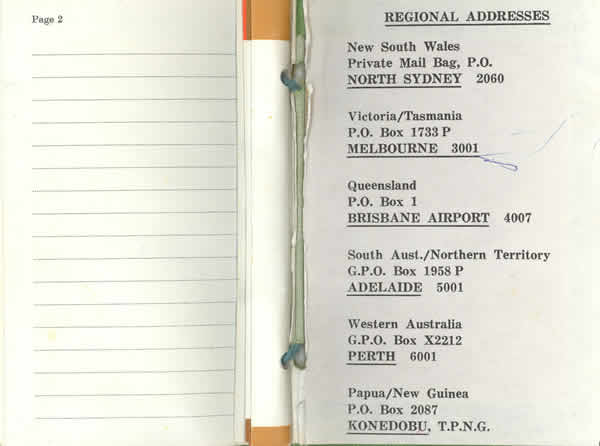 Page 2
REGIONAL ADDRESSES
New South Wales
Private Mail Bag, P.O.
NORTH SYDNEY 2060
Victoria/Tasmania
P.O. Box 1733 P
MELBOURNE 3001
Queensland
P.O. Box 1
BRISBANE AIRPORT 4007
South Aust./Northern Territory
G.P.O. Box 1958 P
ADELAIDE 5001
Western Australia
G.P.O. Box X2212
PERTH 6001
Papua/New Guinea
P.O. Box 2087
KONEDOBU, T.P.N.G.